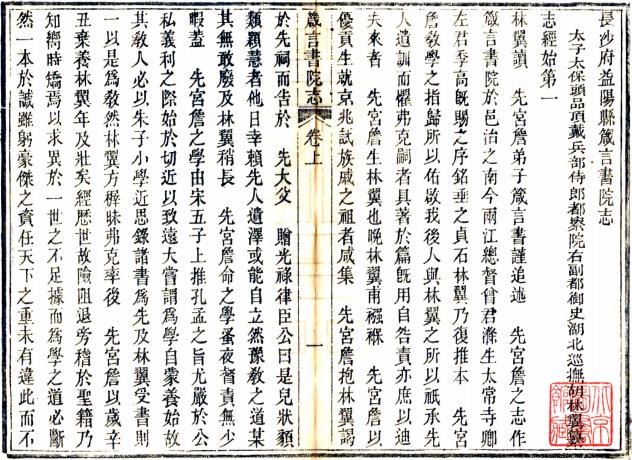 長沙府益陽縣箴言書院志
太子太保頭品頂戴兵部侍郎都察院右副都御史湖北巡撫胡林翼纂
志經始第一
林翼讀 先宮詹弟子箴言書謹追述 先宮詹之志作
箴言書院於邑治之南今兩江總督曾君滌生太常寺卿
左君季高旣賜之序銘垂之貞石林翼乃復推本 先宮
詹敎學之指歸所以佑啟我後人與林翼之所以祇承先
人遺訓而懼弗克嗣者具著於篇旣用自告責亦庶以迪
夫來者 先宮詹生林翼也晚林翼甫襁褓 先宮詹以
優貢生就京兆試族戚之祖者咸集 先宮詹抱林翼謁
箴言書院志 卷上 一
於先祠而告於 先大父 贈光祿律臣公曰是兒狀額
類穎慧者他日幸賴先人遺澤或能自立然豫敎之道某
其無敢廢及林翼稍長 先宮詹命之學蚤夜督責無少
暇蓋 先宮詹之學由宋五子上推孔孟之旨尤嚴於公
私義利之際始於切近以致遠大嘗謂爲學自蒙養始故
其敎人必以朱子小學近思錄諸書爲先及林翼受書則
一以是爲敎然林翼方穉昧弗克率後 先宮詹以歲辛
丑棄養林翼年及壯矣經歷世故險阻退旁稽於聖籍乃
知嚮時矯焉以求異於一世之不足據而爲學之道必斷
然一本於誠雖躬豪傑之資任天下之重未有違此而不